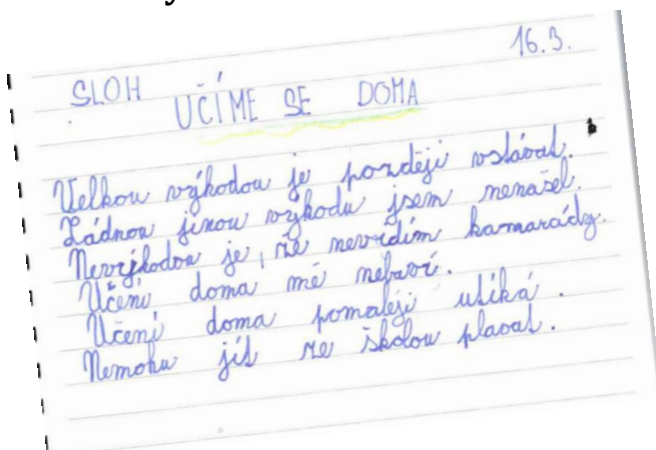 16.3.
SLOH
UČÍME SE DOMA
Velkou výhodou je později vstávat.
Žádnou jinou výhodu jsem nenašel.
Nevýhodou je, že nevidím kamarády.
Učení doma mě nebaví.
Učení doma pomaleji utíká.
Nemohu jít se školou plavat.